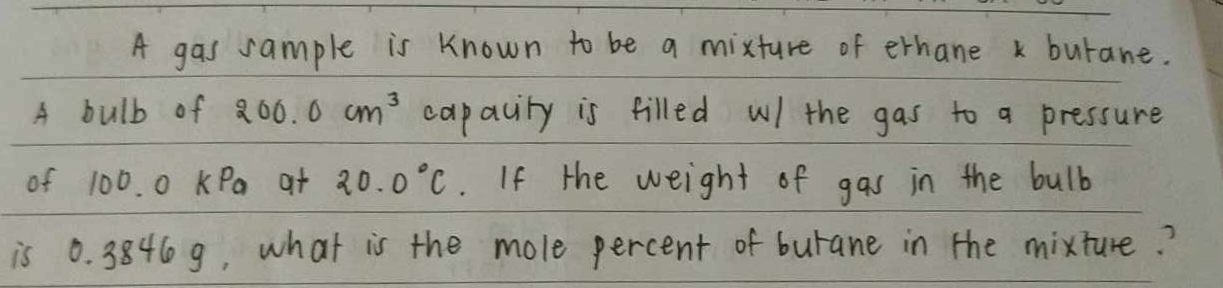 A gas sample is known to be a mixture of ethane & butane.
A bulb of 200.0 cm³ capacity is filled w/ the gas to a pressure
of 100.0 kPa at 20.0°C. If the weight of gas in the bulb
is 0.3846 g, what is the mole percent of butane in the mixture?